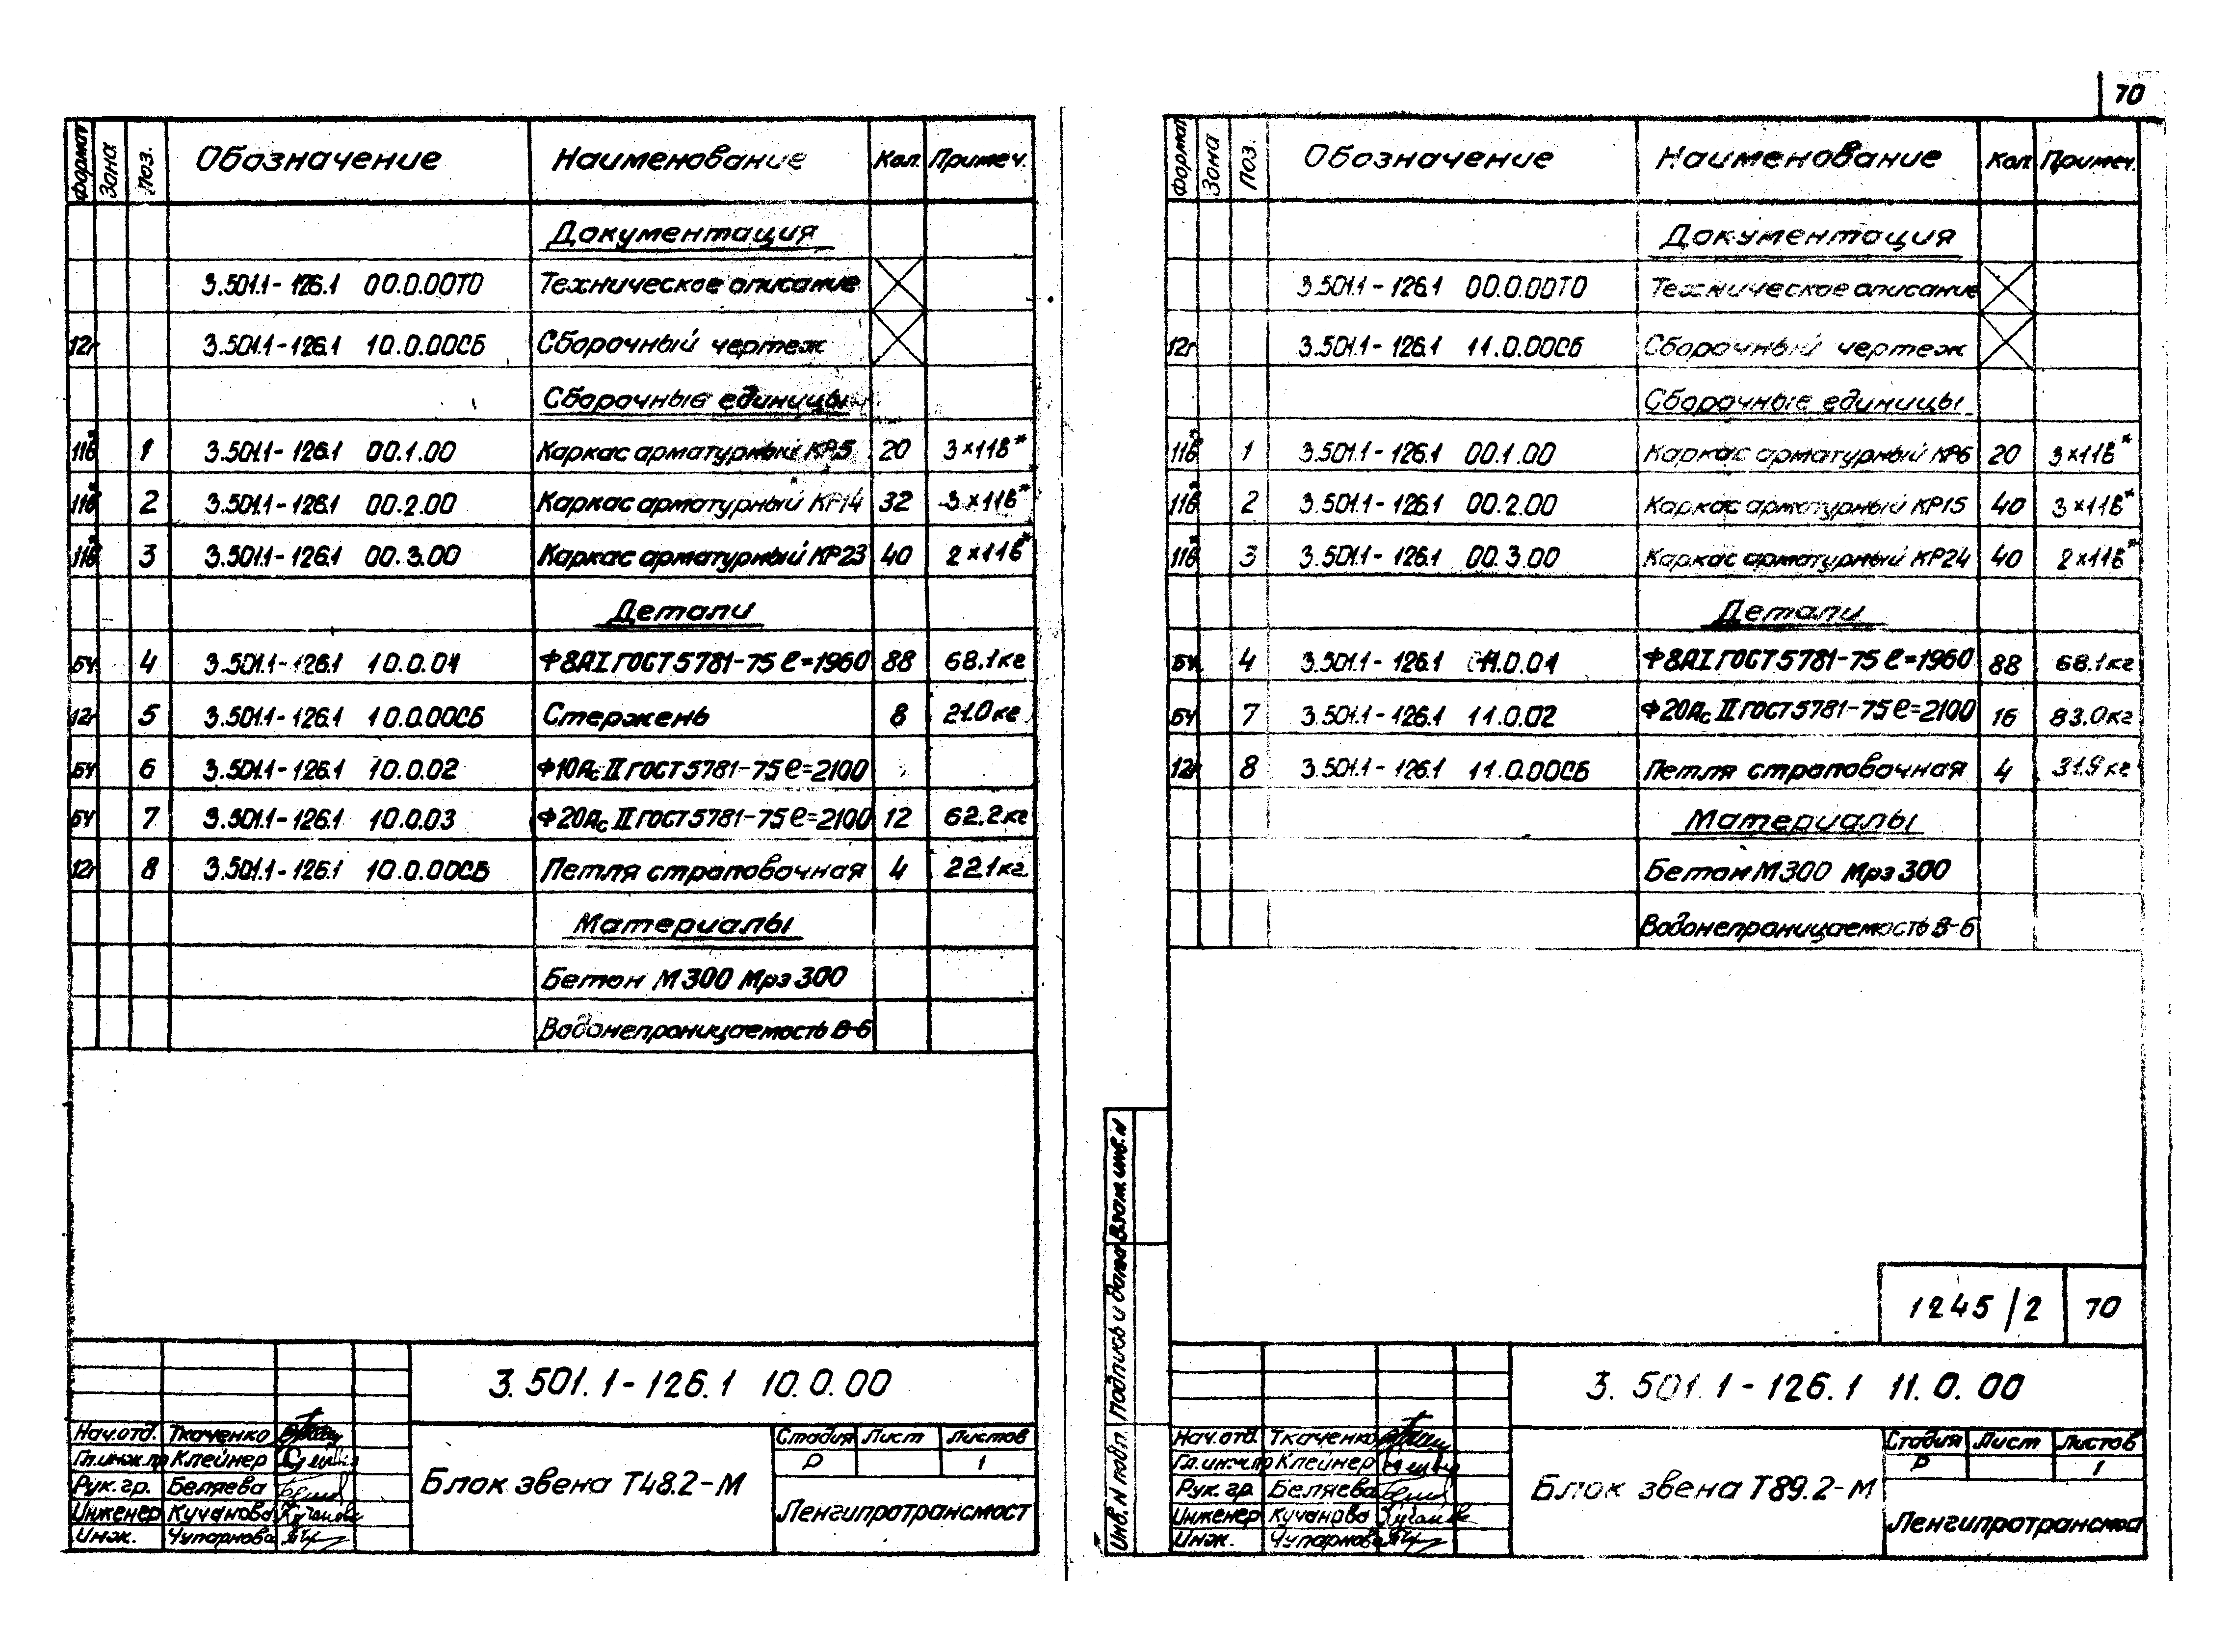 70
Формат Зона Поз. Обозначение Наименование Кол. Примеч.
Документация
3.501.1-126.1 00.0.00ТО Техническое описание
12г 3.501.1-126.1 10.0.00СБ Сборочный чертеж
Сборочные единицы
11в* 1 3.501.1-126.1 00.1.00 Каркас арматурный КР5 20 3×11в*
11в* 2 3.501.1-126.1 00.2.00 Каркас арматурный КР14 32 3×11в*
11в* 3 3.501.1-126.1 00.3.00 Каркас арматурный КР23 40 2×11в*
Детали
БЧ 4 3.501.1-126.1 10.0.01 Ф8АI ГОСТ 5781-75 ℓ=1960 88 68.1кг
12г 5 3.501.1-126.1 10.0.00СБ Стержень 8 21.0кг
БЧ 6 3.501.1-126.1 10.0.02 Ф10АсII ГОСТ 5781-75 ℓ=2100
БЧ 7 3.501.1-126.1 10.0.03 Ф20АсII ГОСТ 5781-75 ℓ=2100 12 62.2кг
12г 8 3.501.1-126.1 10.0.00СБ Петля строповочная 4 22.1кг
Материалы
Бетон М300 Мрз300
Водонепроницаемость В-6
3.501.1-126.1 10.0.00
Нач.отд. Ткаченко
Гл.инж.пр Клейнер
Рук.гр. Беляева
Инженер Кучанова
Инж. Чупарнова
Блок звена Т48.2-М
Стадия Лист Листов
Р 1
Ленгипротрансмост
Формат Зона Поз. Обозначение Наименование Кол. Примеч.
Документация
3.501.1-126.1 00.0.00ТО Техническое описание
12г 3.501.1-126.1 11.0.00СБ Сборочный чертеж
Сборочные единицы
11в* 1 3.501.1-126.1 00.1.00 Каркас арматурный КР6 20 3×11в*
11в* 2 3.501.1-126.1 00.2.00 Каркас арматурный КР15 40 3×11в*
11в* 3 3.501.1-126.1 00.3.00 Каркас арматурный КР24 40 2×11в*
Детали
БЧ 4 3.501.1-126.1 11.0.01 Ф8АI ГОСТ 5781-75 ℓ=1960 88 68.1кг
БЧ 7 3.501.1-126.1 11.0.02 Ф20АсII ГОСТ 5781-75 ℓ=2100 16 83.0кг
12г 8 3.501.1-126.1 11.0.00СБ Петля строповочная 4 31.9кг
Материалы
Бетон М300 Мрз300
Водонепроницаемость В-6
Инв.N подл. Подпись и дата Взам.инв.N
1245/2 70
3.501.1-126.1 11.0.00
Нач.отд. Ткаченко
Гл.инж.пр Клейнер
Рук.гр. Беляева
Инженер Кучанова
Инж. Чупарнова
Блок звена Т89.2-М
Стадия Лист Листов
Р 1
Ленгипротрансмо